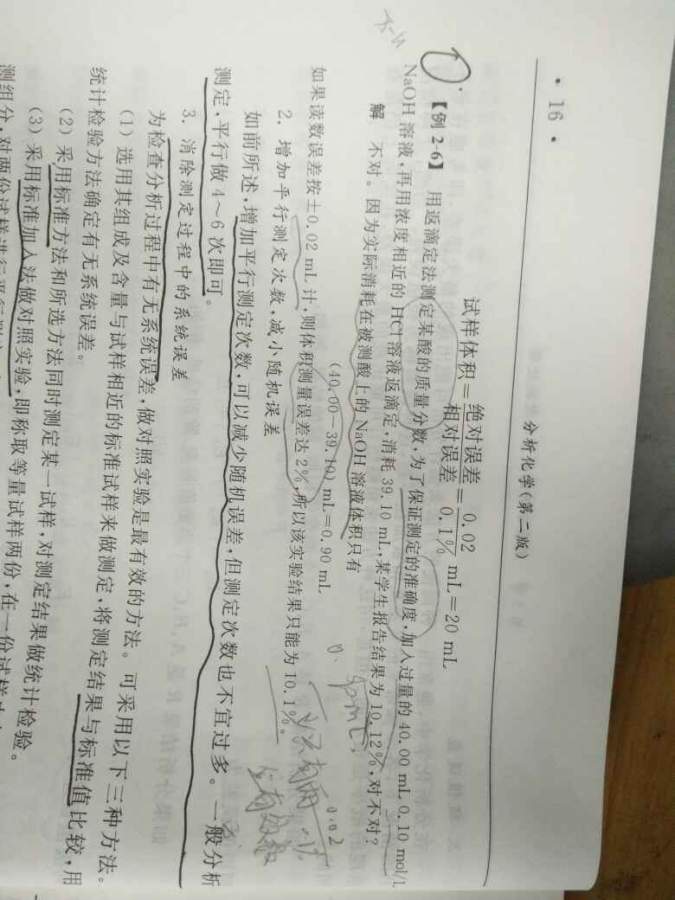 · 16 ·
分析化学(第二版)
试样体积=绝对误差/相对误差=0.02/0.1% mL=20 mL
【例 2-6】 用返滴定法测定某酸的质量分数,为了保证测定的准确度,加入过量的 40.00 mL 0.10 mol/L
NaOH 溶液,再用浓度相近的 HCl 溶液返滴定,消耗 39.10 mL,某学生报告结果为 10.12%,对不对?
解 不对。因为实际消耗在被测酸上的 NaOH 溶液体积只有
(40.00−39.10) mL=0.90 mL
如果读数误差按±0.02 mL 计,则体积测量误差达 2%,所以该实验结果只能为 10.1%。
2. 增加平行测定次数,减小随机误差
如前所述,增加平行测定次数,可以减少随机误差,但测定次数也不宜过多。一般分析
测定,平行做 4~6 次即可。
3. 消除测定过程中的系统误差
为检查分析过程中有无系统误差,做对照实验是最有效的方法。可采用以下三种方法。
(1) 选用其组成及含量与试样相近的标准试样来做测定,将测定结果与标准值比较,用
统计检验方法确定有无系统误差。
(2) 采用标准方法和所选方法同时测定某一试样,对测定结果做统计检验。
(3) 采用标准加入法做对照实验,即称取等量试样两份,在一份试样
测组分,对两份试样进行平行
0.02
有效数